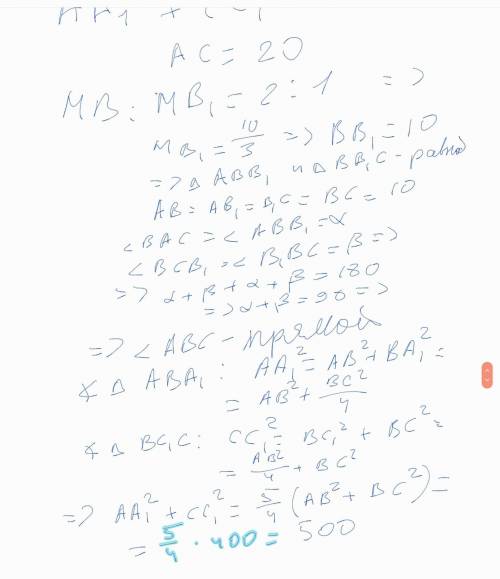 AA₁ + CC₁
AC = 20
MB : MB₁ = 2 : 1 =>
MB₁ = 10/3 => BB₁ = 10
=> △ ABB₁ и △ BB₁C - равноб
AB = AB₁ = B₁C = BC = 10
∠BAC = ∠ABB₁ = α
∠BCB₁ = ∠B₁BC = β =>
=> α + β + α + β = 180
=> α + β = 90 =>
=> ∠ABC - прямой
∢ △ ABA₁ : AA₁² = AB² + BA₁² =
= AB² + BC²/4
∢ △ BC₁C : CC₁² = BC₁² + BC² =
= AB²/4 + BC²
=> AA₁² + CC₁² = 5/4 (AB² + BC²) =
= 5/4 · 400 = 500